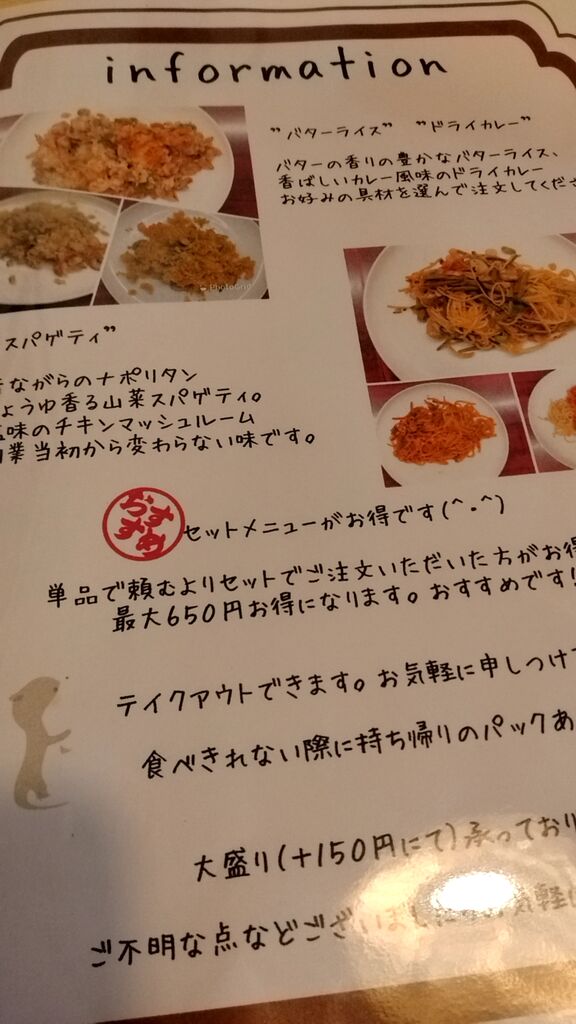 information
"バターライス" "ドライカレー"
バターの香りの豊かなバターライス、
香ばしいカレー風味のドライカレー
お好みの具材を選んで注文してくださ
PhotoGrid
スパゲティ"
ながらのナポリタン
ょうゆ香る山菜スパゲティ。
味のチキンマッシュルーム
業当初から変わらない味です。
おすすめ
セットメニューがお得です(^.^)
単品で頼むよりセットでご注文いただいた方がお得
最大650円お得になります。おすすめです!
テイクアウトできます。お気軽に申しつけ
食べきれない際に持ち帰りのパックあ
大盛り(+150円にて)承っており
ご不明な点などございましたらお気軽に